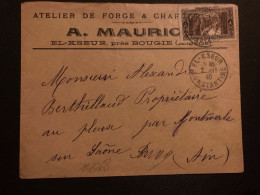 ATELIER DE FORGE & CHAR
A. MAURIC
EL-KSEUR, près BOUGIE
EL-KSEUR
CONSTANTINE
Monsieur Alexandre
Berthillaud Propriétaire
au plume par Montmerle
sur Saône (Ain)